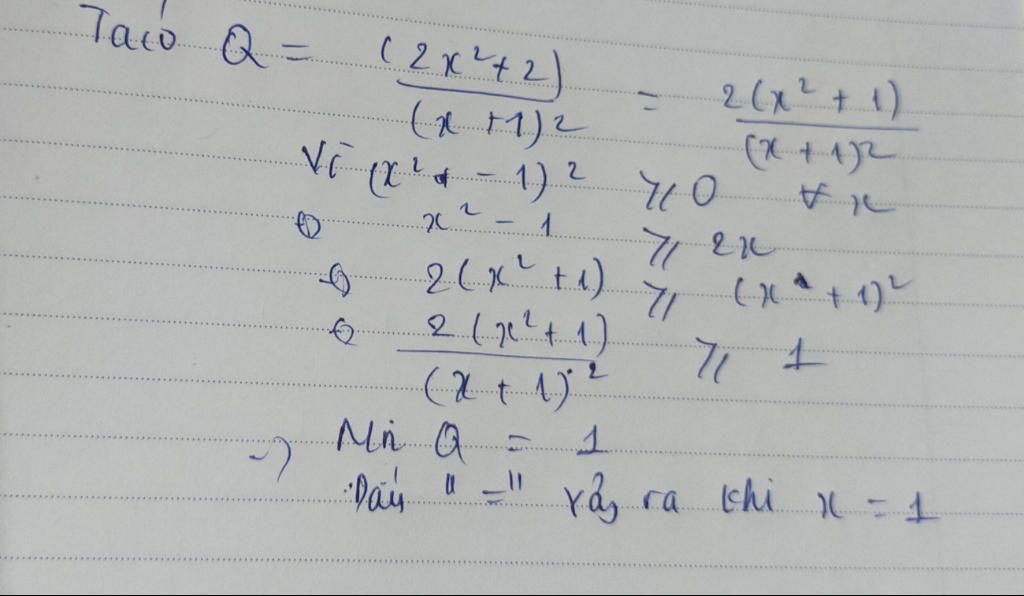 Ta có Q = (2x²+2) / (x+1)² = 2(x²+1) / (x+1)²
Vì (x² - 1)² ⩾ 0 ∀ x
x² - 1 ⩾ 2x
2(x²+1) ⩾ (x+1)²
2(x²+1) / (x+1)² ⩾ 1
=> Min Q = 1
Dấu "=" xảy ra khi x = 1